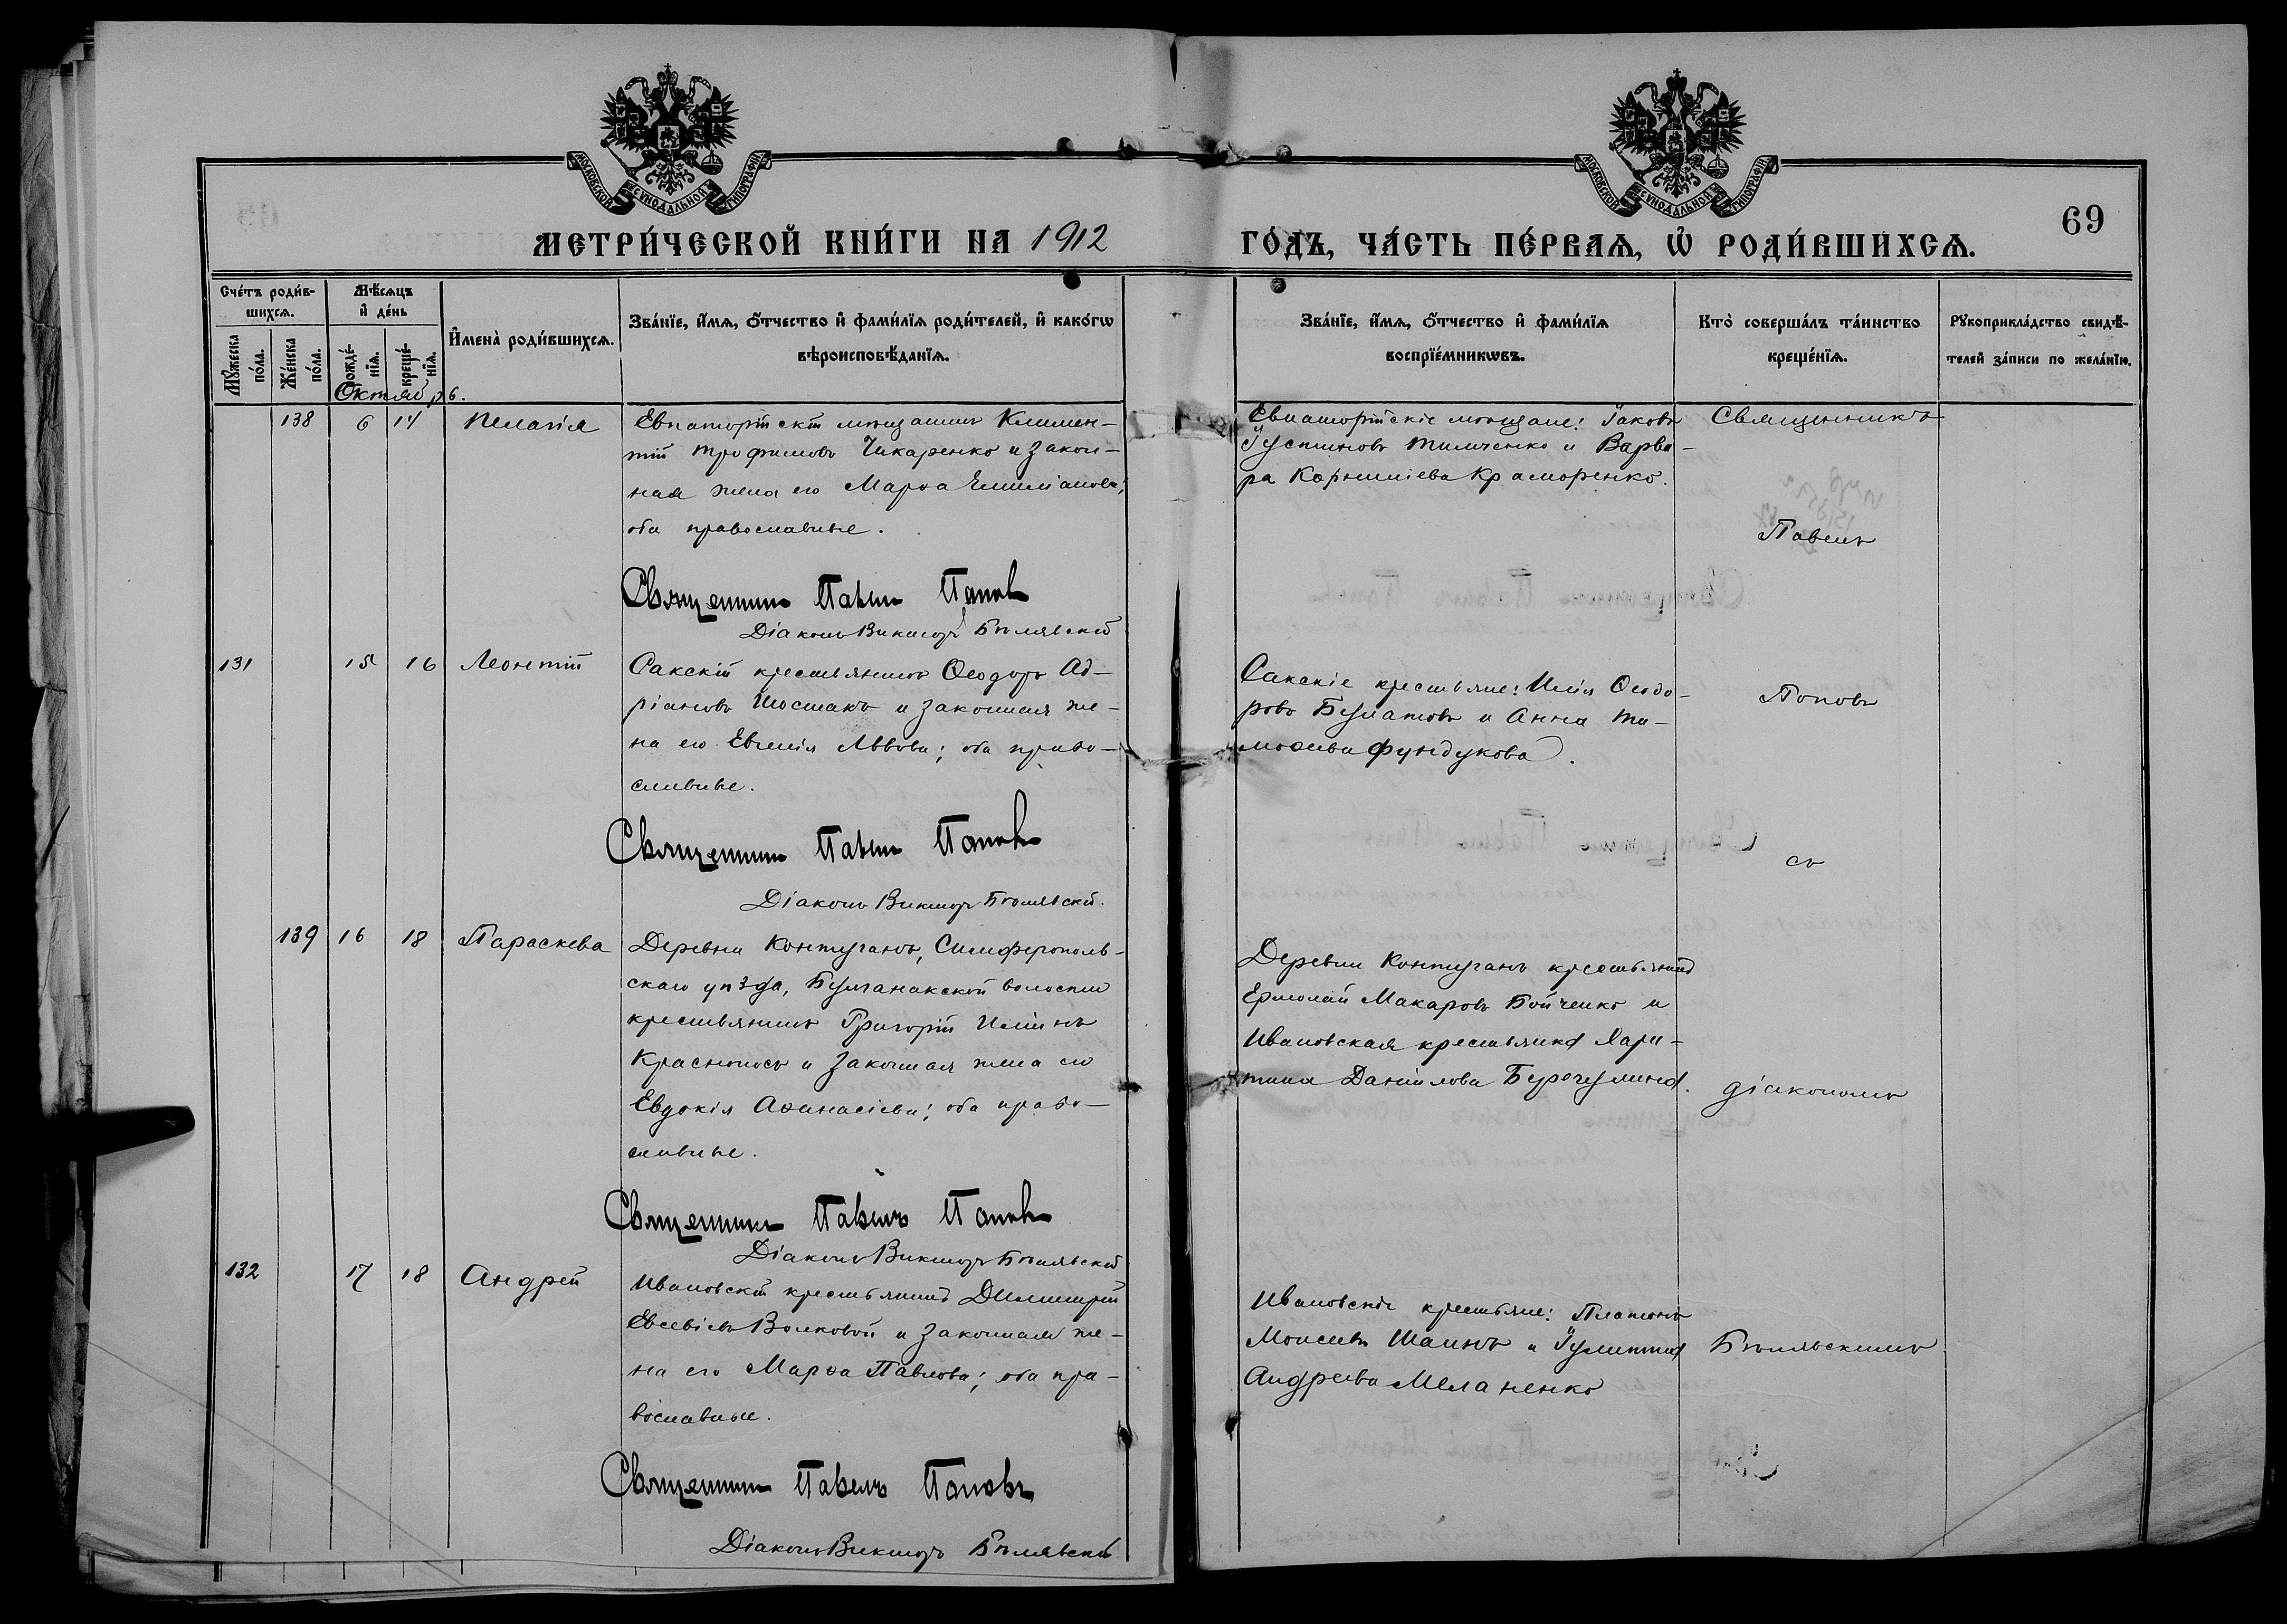 МОСКОВСКОЙ СѴНОДАЛЬНОЙ ТИПОГРАФІИ
МОСКОВСКОЙ СѴНОДАЛЬНОЙ ТИПОГРАФІИ
69
МЕТРИ́ЧЕСКОЙ КНИ́ГИ НА 1912
ГО́ДЪ, ЧА́СТЬ ПЕ́РВАѦ, Ѡ҆ РОДИ́ВШИХСѦ.
Сче́тъ роди́в-
шихсѧ.
Мꙋ́жеска по́ла.
Же́нска по́ла.
Мѣ́сѧцъ
и҆ де́нь
рожде́-
нїѧ.
креще́-
нїѧ.
И҆мена̀ роди́вшихсѧ.
Зва́нїе, и҆́мѧ, ѻ҆́тчество и҆ фами́лїѧ роди́телей, и҆ како́гѡ
вѣроисповѣ́данїѧ.
Зва́нїе, и҆́мѧ, ѻ҆́тчество и҆ фами́лїѧ
воспрїе́мникѡвъ.
Кто̀ соверша́лъ та́инство
креще́нїѧ.
Рꙋкоприкла́дство свидѣ́-
телей за́писи по жела́нїю.
Октябрь.
138 6 14 Пелагія
Евпаторійскій мѣщанинъ Климен-
тій Трофимовъ Чикаренко и закон-
ная жена его Марѳа Емиліанова;
оба православные.
Священникъ Павелъ Поповъ
Діаконъ Викторъ Бѣлявскій
Евпаторійскіе мѣщане: Іаковъ
Іустиновъ Тимченко и Варва-
ра Корниліева Краморенко.
Священникъ
Павелъ
131 15 16 Леонтій
Сакскій крестьянинъ Ѳеодоръ Ад-
ріановъ Шостакъ и законная же-
на его Евгенія Львова; оба право-
славные.
Священникъ Павелъ Поповъ
Діаконъ Викторъ Бѣлявскій.
Сакскіе крестьяне: Илія Ѳеодо-
ровъ Булатовъ и Анна Ти-
моѳеева Фундукова.
Поповъ
съ
139 16 18 Параскева
Деревни Контуганъ, Симферополь-
скаго уѣзда, Булганакской волости
крестьянинъ Григорій Иліинъ
Красноносъ и законная жена его
Евдокія Аѳанасіева; оба право-
славные.
Священникъ Павелъ Поповъ
Діаконъ Викторъ Бѣлявскій
Деревни Контуганъ крестьянинъ
Ермолай Макаровъ Бойченко и
Ивановская крестьянка Хари-
тина Даніилова
діакономъ
132 17 18 Андрей
Ивановскій крестьянинъ Димитрій
Евсевіевъ Волковой и законная же-
на его Марѳа Павлова; оба пра-
вославные.
Священникъ Павелъ Поповъ
Діаконъ Викторъ Бѣлявскій
Ивановскіе крестьяне: Платонъ
Моисеевъ и Іулитта
Андреева Меланенко
Бѣлявскимъ